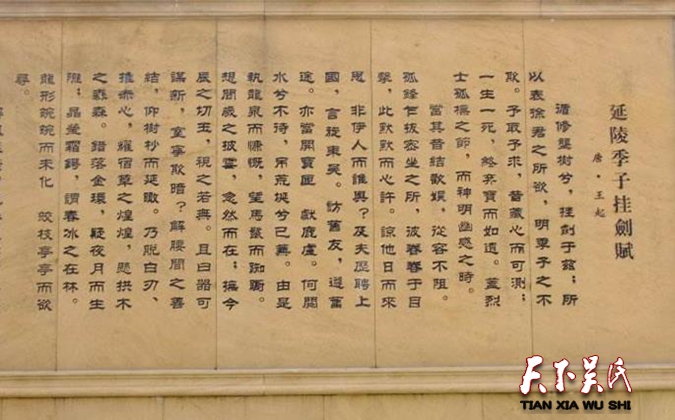 延陵季子挂劍賦
唐·王起
循修壟樹兮，挂劍于茲；所
以表徐君之所欲，明季子之不
欺。予取予求，昔藏心而可測；
一生一死，終弃寶而如遺。蓋烈
士孤標之節，而神明幽感之時。
當其昔結歡娛，從容不阻。
孤鋒乍拔密坐之所，彼眷眷于目
擊，此默默而心許。諒他日而來
思 非伊人而誰與？及夫歷聘上
國，言旋東吴。訪舊友，遵舊
途。亦當開寶匣 獻鹿盧。何閱
水兮不待，吊荒埏兮已蕪。由是
執龍泉而慷慨，望馬鬣而踟躕。
想閼歲之披雲，忽然而在；撫今
辰之切玉，視之若無。且曰器可
謀新，室寧欺暗？解腰間之善
結，仰樹杪而延瞰。乃脱白刃、
推赤心，耀宿草之煌煌，懸拱木
之森森。錯落金環，疑夜月而生
隙；晶瑩霜鍔，謂春冰之在林。
龍形蜿蜿而未化 蛟枝亭亭而欲
尋。
天下吴氏
TIAN XIA WU SHI